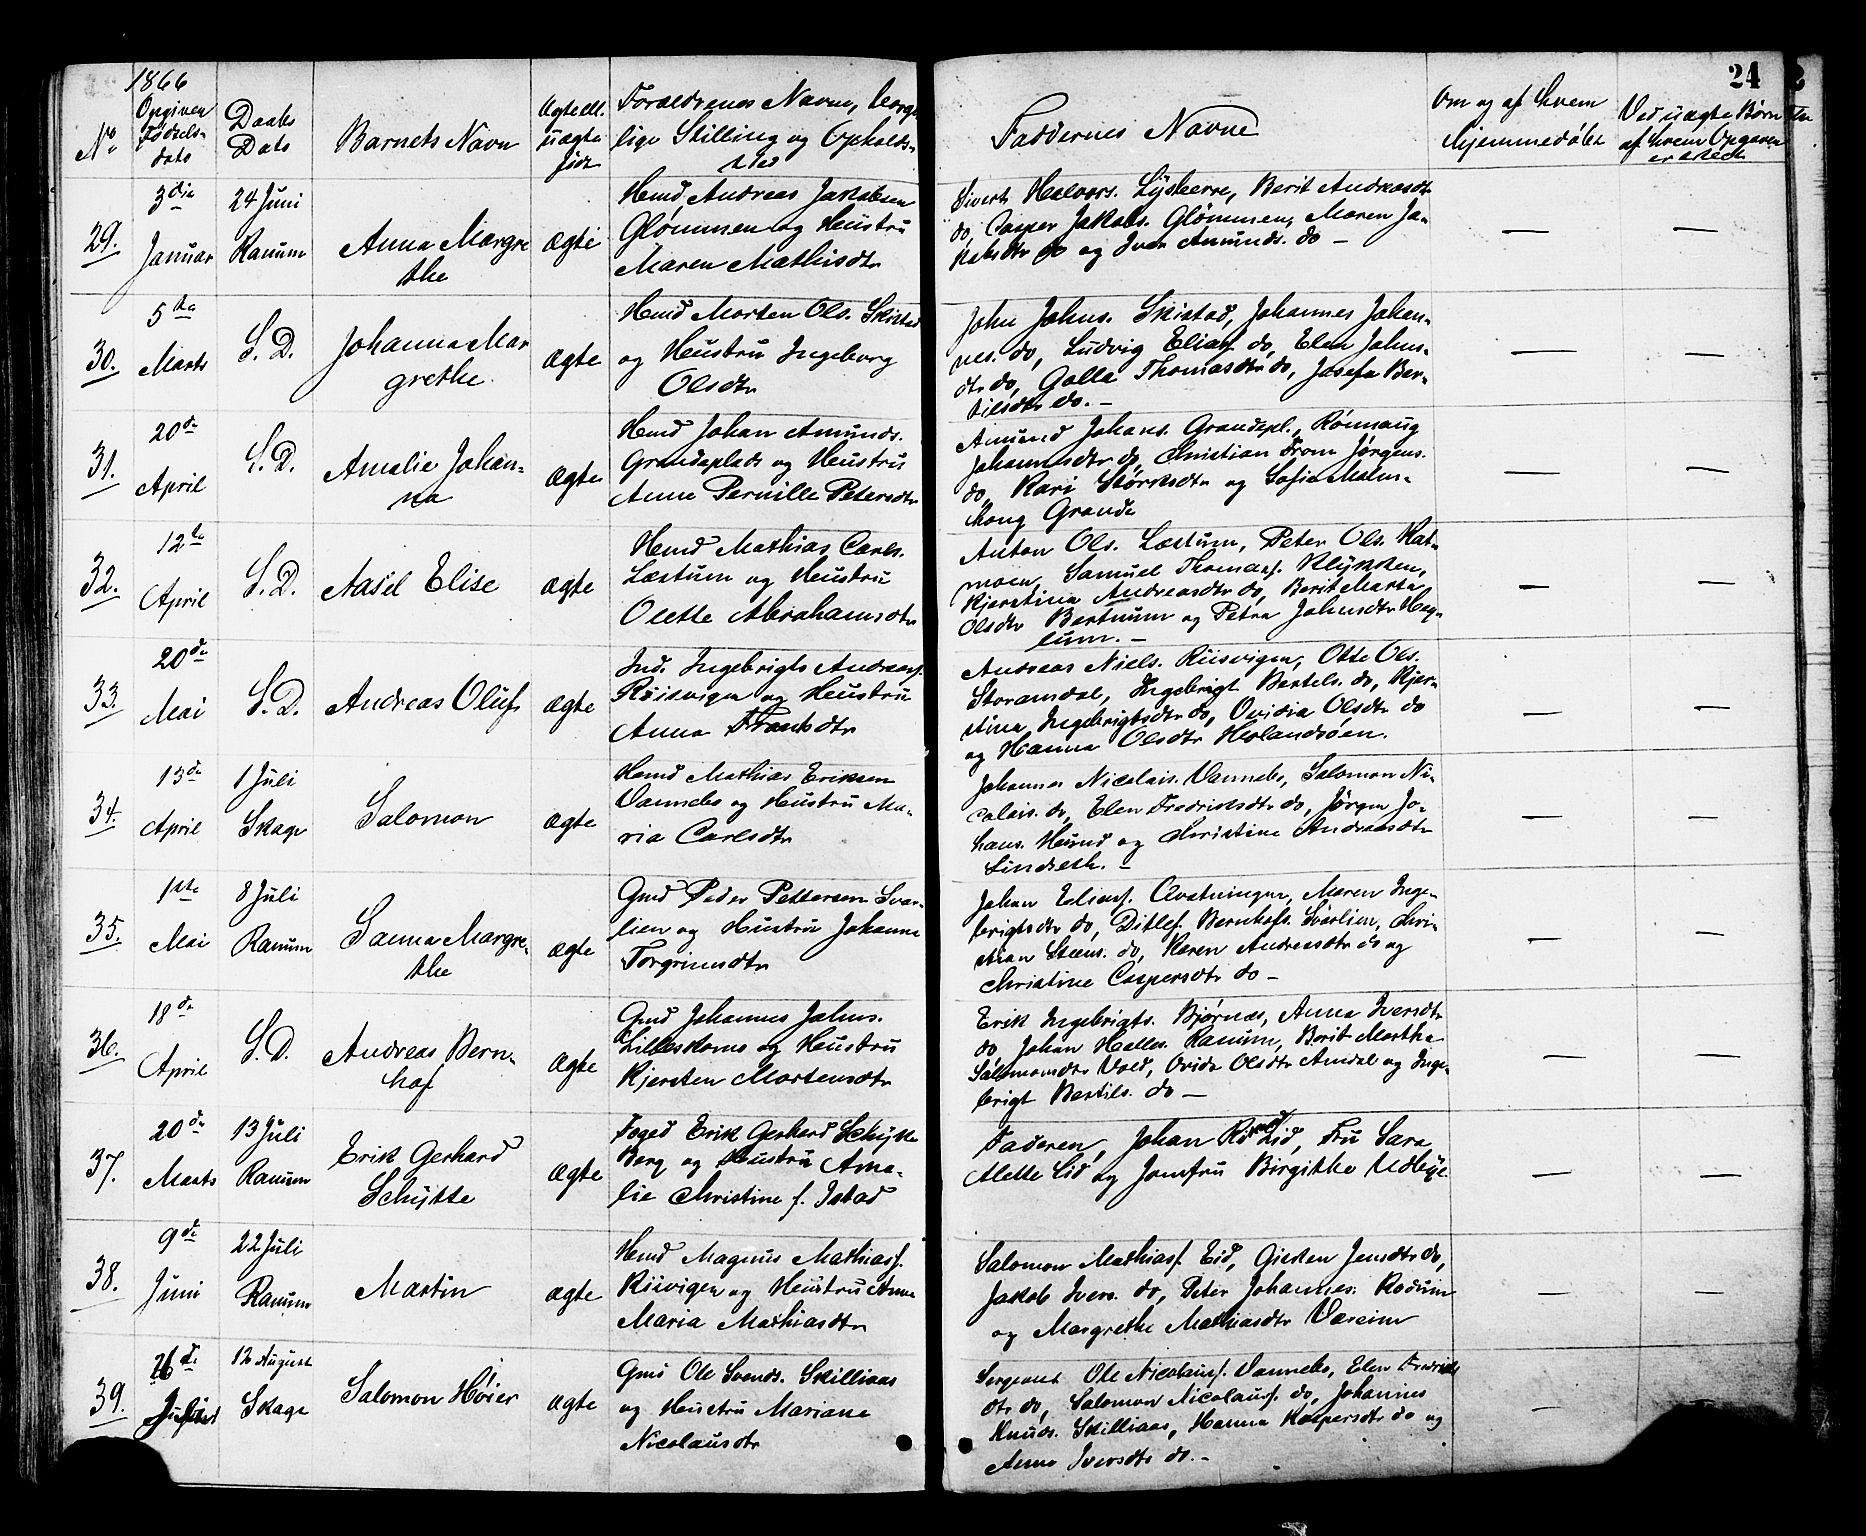 24
1866
No
Opgiven Fødsels-dato
Daabs Dato
Barnets Navn
Ægte ell. uægte født
Forældrenes Navne, borger-
lige Stilling og Opholds-
sted
Faddernes Navne
Om og af hvem
hjemmedøbt
Ved uægte Børn
af hvem Opgaven
er skeet
29.
3die Januar
24 Juni Ranum
Anna Margre
the
ægte
Hmd Andreas Jakobsen
Glømmen og Hustru
Maren Mathisdtr
Sivert Halvors. Lysberre, Berit Andreasdtr
do, Casper Jakobs. Glømmen, Maren Ja-
kobsdtr do og Iver Amunds. do —
30.
5te Marts
S. D.
Johanna Mar
grethe
ægte
Hmd Morten Ols. Skistad
og Hustru Ingeborg
Olsdtr
John Johns. Skistad, Johannes Johan-
nes. do, Ludvig Elias. do, Elen Johns-
dtr do, Golla Thomasdtr do, Josefa Ber-
tilsdtr do. —
31.
20de April
S. D.
Amalie Johan-
na
ægte
Hmd Johan Amunds.
Grandeplads og Hustru
Anne Pernille Petersdtr
Amund Johans. Grandepl., Rønnaug
Johannesdtr do, Christian From Jørgens.
do, Kari Størksdtr og Sofie Malm-
hong Grande
32.
12te April
S. D.
Aasel Elise
ægte
Hmd Mathias Carls.
Læstum og Hustru
Olette Abrahamsdtr
Anton Ols. Læstum, Peter Ols. Hat-
moen, Samuel Thomas. Klykken,
Kjerstina Andreasdtr do, Berit Marta
Olsdtr Bertnum og Petra Johnsdtr Hag-
lum. —
33.
20de Mai
S. D.
Andreas Oluf
ægte
Ind. Ingebrigt Andreas.
Riisvigen og Hustru
Anna Frantsdtr
Andreas Niels. Riisvigen, Otte Ols.
Storamdal, Ingebrigt Bertels. do, Kjer-
stina Ingebrigtsdtr do, Ovidia Olsdtr do
og Hanna Olsdtr Holandsöen.
34.
13de April
1 Juli Skage
Salomon
ægte
Hmd Mathias Eriksen
Vannebo og Hustru Ma-
ria Carlsdtr
Johannes Nicolais. Vannebo, Salomon Ni-
colais. do, Elen Fredriksdtr do, Jørgen Jo-
hans. Hund og Christine Andreasdtr
Lindseth. —
35.
1ste Mai
8 Juli Ranum
Sanna Margre-
the
ægte
Gmd Peder Pettersen Svar-
lien og Hustru Johanna
Torgrimsdtr
Johan Elias. Overhningen, Maren Inge-
brigtsdtr do, Ditlef Bernhofs. Svarlien, Chri-
stian Steens. do, Karen Andreasdtr do og
Christine Caspersdtr do —
36.
18de April
S. D.
Andreas Bern-
hof
ægte
Gmd Johannes Johns.
Lilleskomo og Hustru
Kjersten Mortensdtr
Erik Ingebrigts. Bjørnes, Anna Iversdtr
do, Johan Halls. Ranum, Berit Martha
Salomonsdtr Vold, Ovidia Olsdtr Amdal og Inge-
brigt Bertils. do —
37.
20de Marts
13 Juli Ranum
Erik Gerhard
Schytte
ægte
Foged Erik Gerhard Schytte
Berg og Hustru Ama-
lie Christine f. Jstad
Faderen, Johan Lid, Fru Sara
Mette Lid og Jomfru Birgitte Udbye
38.
9de Juni
22 Juli Ranum
Martin
ægte
Hmd Magnus Mathias.
Riisvigen og Hustru Anne
Maria Mathiasdtr
Salomon Mathias. Eid, Gjerten Jensdtr do,
Jakob Ivers. do, Peter Johannes. Rodum
og Margrethe Mathiasdtr Væreim
39.
12 August Skage
Salomon Høier
ægte
Gmd Ole Svends. Skilliaas
og Hustru Mariane
Nicolausdtr
Sergeant Ole Nicolaus. Vannebo, Elen Fredriks
dtr do, Salomon Nicolaus. do, Johannes
Knuds. Skilliaas, Hanna Kaspersdtr do og
Anne Iversdtr do. —